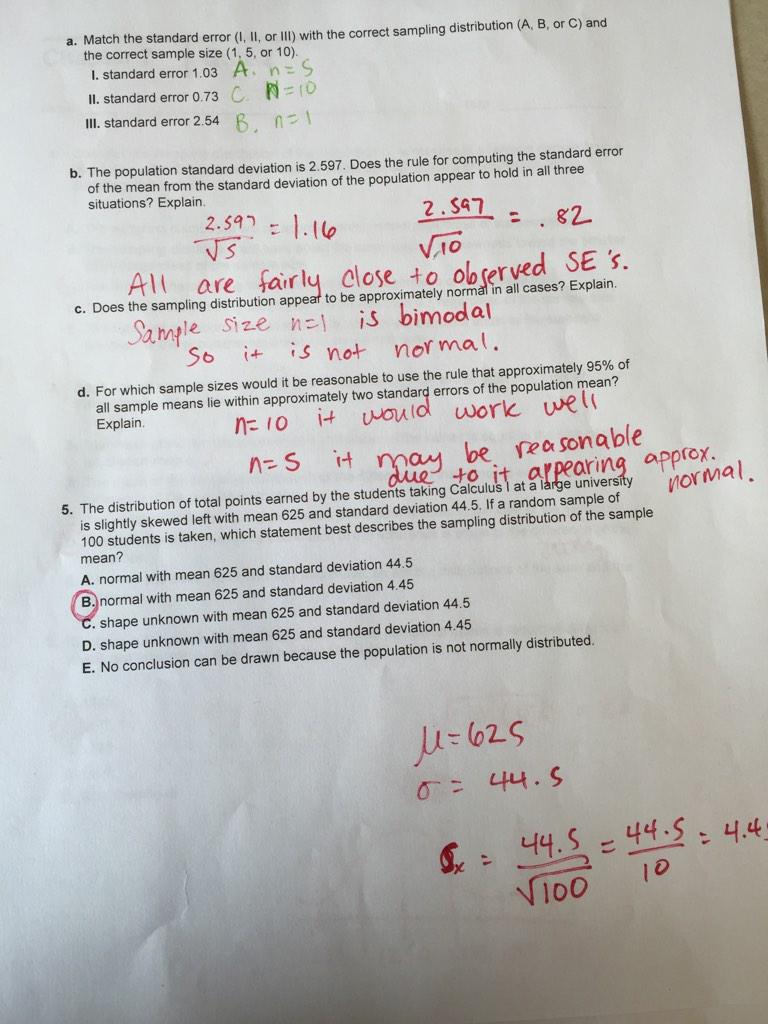 a. Match the standard error (I, II, or III) with the correct sampling distribution (A, B, or C) and
the correct sample size (1, 5, or 10).
I. standard error 1.03 A. n=5
II. standard error 0.73 C. N=10
III. standard error 2.54 B. n=1
b. The population standard deviation is 2.597. Does the rule for computing the standard error
of the mean from the standard deviation of the population appear to hold in all three
situations? Explain.
2.597/√5 = 1.16 2.597/√10 = .82
All are fairly close to observed SE's.
c. Does the sampling distribution appear to be approximately normal in all cases? Explain.
Sample size n=1 is bimodal
so it is not normal.
d. For which sample sizes would it be reasonable to use the rule that approximately 95% of
all sample means lie within approximately two standard errors of the population mean?
Explain.
n=10 it would work well
n=5 it may be reasonable
due to it appearing approx.
normal.
5. The distribution of total points earned by the students taking Calculus I at a large university
is slightly skewed left with mean 625 and standard deviation 44.5. If a random sample of
100 students is taken, which statement best describes the sampling distribution of the sample
mean?
A. normal with mean 625 and standard deviation 44.5
B. normal with mean 625 and standard deviation 4.45
C. shape unknown with mean 625 and standard deviation 44.5
D. shape unknown with mean 625 and standard deviation 4.45
E. No conclusion can be drawn because the population is not normally distributed.
μ=625
σ = 44.5
σx = 44.5/√100 = 44.5/10 = 4.4